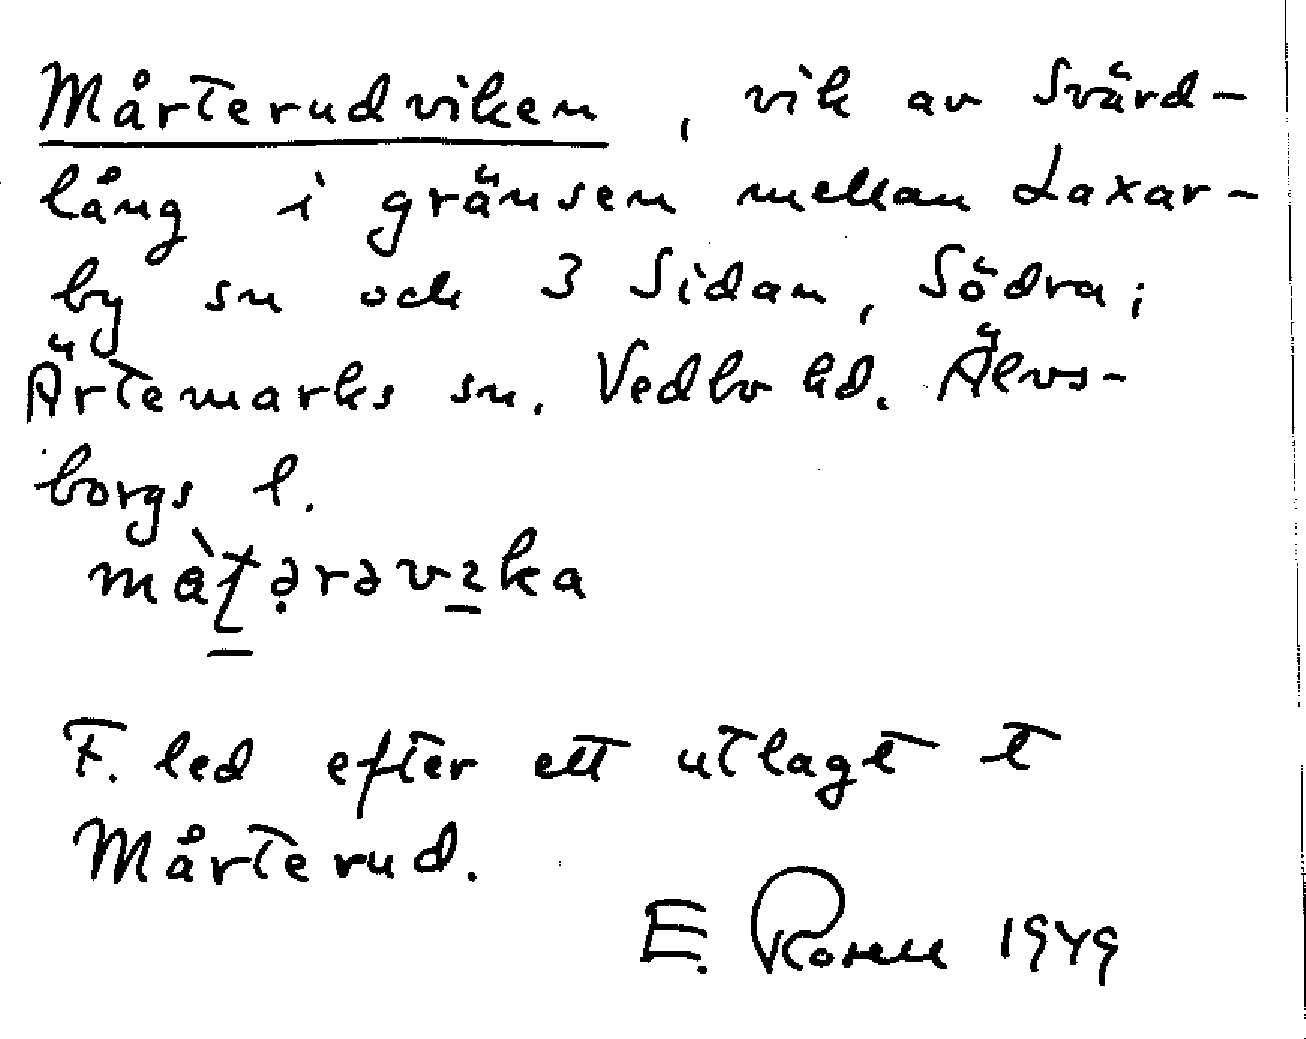 Mårterudviken, vik av Svärd-
lång i gränsen mellan Laxar-
by sn och 3 Sidan, Södra;
Ärtemarks sn. Vedbo hd. Älvs-
borgs l.
F. led efter ett utlagt t
Mårterud.
E. Rosell 1949